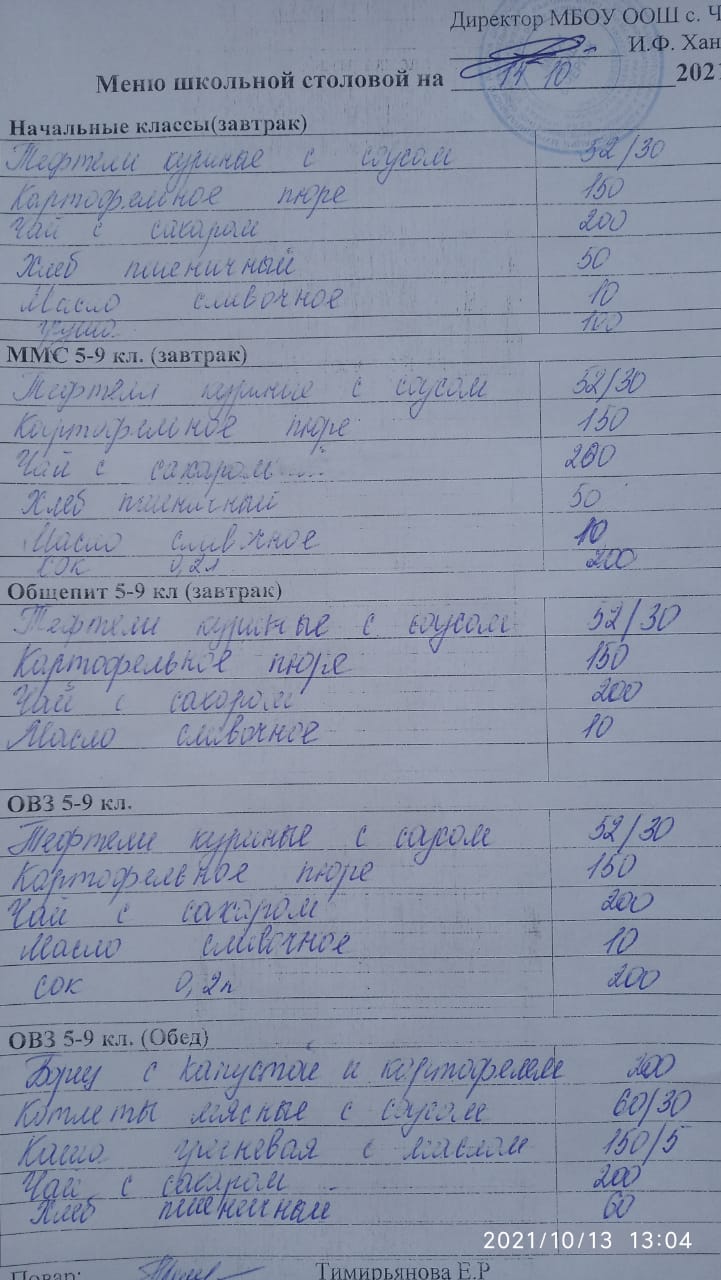 Директор МБОУ ООШ с. Ч
И.Ф. Хан
Меню школьной столовой на 14 10 2021
Начальные классы(завтрак)
Тефтели куриные с соусом 52/30
Картофельное пюре 150
Чай с сахаром 200
Хлеб пшеничный 50
Масло сливочное 10
груша 100
ММС 5-9 кл. (завтрак)
Тефтели куриные с соусом 52/30
Картофельное пюре 150
Чай с сахаром 200
Хлеб пшеничный 50
Масло сливжное 10
сок 0,2л 200
Общепит 5-9 кл (завтрак)
Тефтели куриные с соусом 52/30
Картофельное пюре 150
Чай с сахором 200
Масло сливочное 10
ОВЗ 5-9 кл.
Тефтели куриные с соусом 52/30
Картофельное пюре 150
Чай с сахаром 200
Масло сливочное 10
сок 0,2л 200
ОВЗ 5-9 кл. (Обед)
Борщ с капустой и картофелем 200
Котлеты мясные с соусом 60/30
Каша гречневая с маслом 150/5
Чай с сахаром 200
Хлеб пшеничный 60
2021/10/13 13:04
Повар: Тимирьянова Е.Р